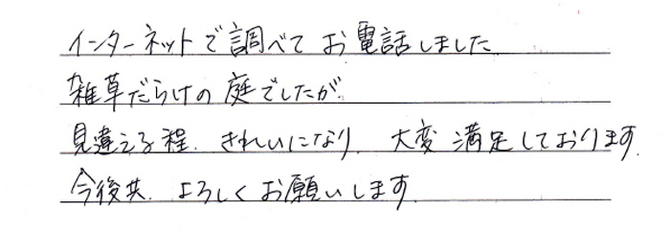 インターネットで調べてお電話しました
雑草だらけの庭でしたが
見違える程、きれいになり、大変満足しております。
今後共、よろしくお願いします。